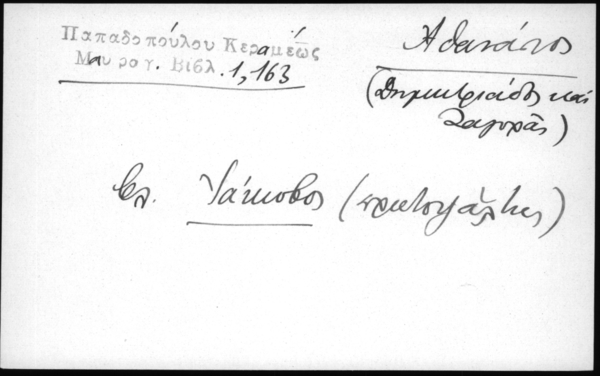 Παπαδοπούλου Κεραμέως
Μαυρογ. Βιβλ. 1, 163
Ἀθανάσιος
(Δημητριάδος καὶ
Ζαγορᾶς)
βλ. Ἰάκωβος (πρωτοψάλτης)